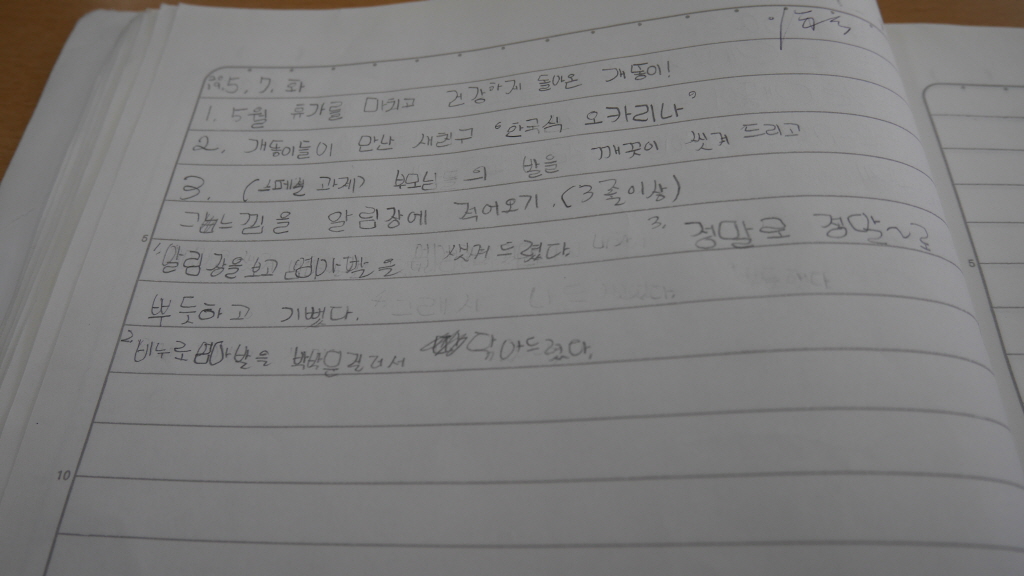 5. 7. 화
1. 5월 휴가를 마치고 건강하게 돌아온 개똥이!
2. 개똥이들이 만난 새친구 "한국식 오카리나"
3. (스페셜 과제) 부모님의 발을 깨끗이 씻겨 드리고
그 느낌을 알림장에 적어오기. (3줄이상)
1. 알림장을보고 엄마발을 씻겨드렸다 3. 정말로 정말~로
뿌듯하고 기뻤다.
2. 비누로 엄마발을 닦아드렸다.
5
10
5